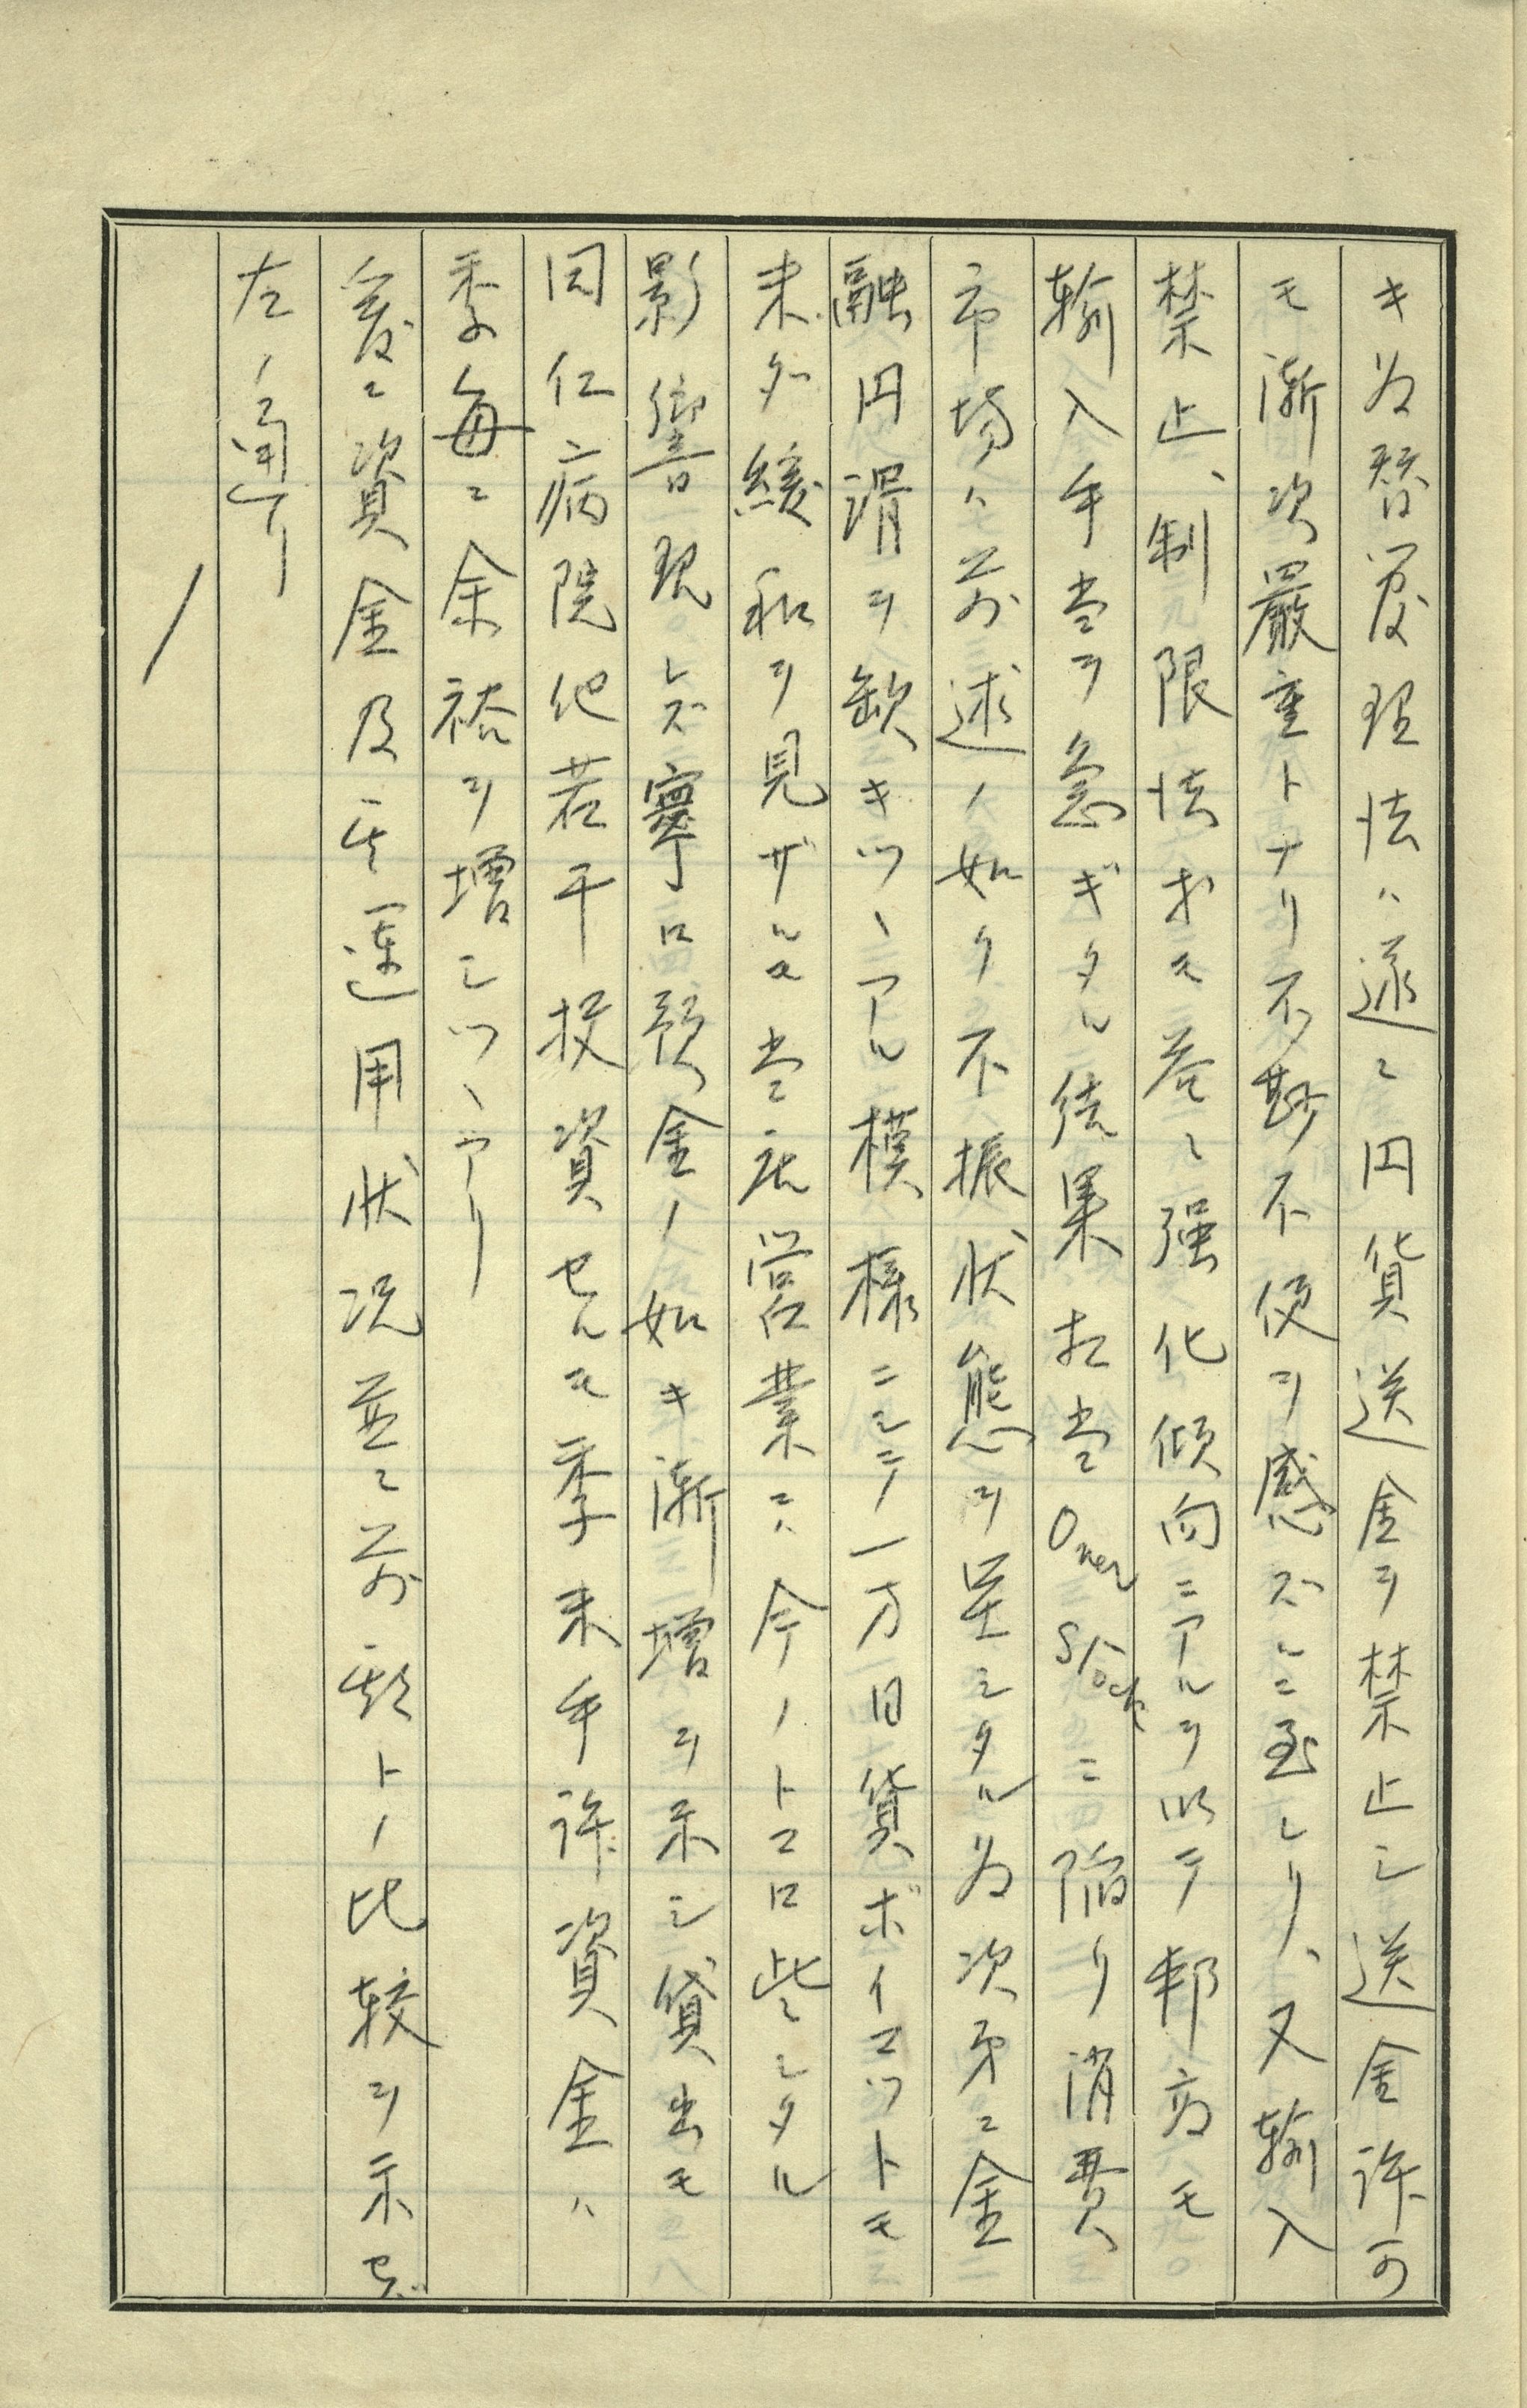 キ為替管理法ハ遂ニ円貨送金ヲ禁止シ送金許可
モ漸次嚴重トナリ不尠不便ヲ感ズルニ至レリ、又輸入
禁止、制限法おモ益々强化傾向ニアルヲ以テ邦商モ
輸入手当ヲ急ギタル結果相当Over Stockニ陥リ消費
市場ハ前述ノ如ク不振狀態ヲ呈シタル為次第ニ金
融円滑ヲ欠キツヽアル模様ニシテ一方日貨ボイコツトモ
未ダ緩和ヲ見ザルモ当店營業ニハ今ノトコロ些シタル
影響現レズ寧ロ預金ノ如キ漸増ヲ示シ貸出モ
同仁病院他若干投資セルモ季末手許資金ハ
季毎ニ余裕ヲ增シツヽアリ
爰ニ資金及其運用狀況並ニ前期トノ比較ヲ示セバ
左ノ通リ